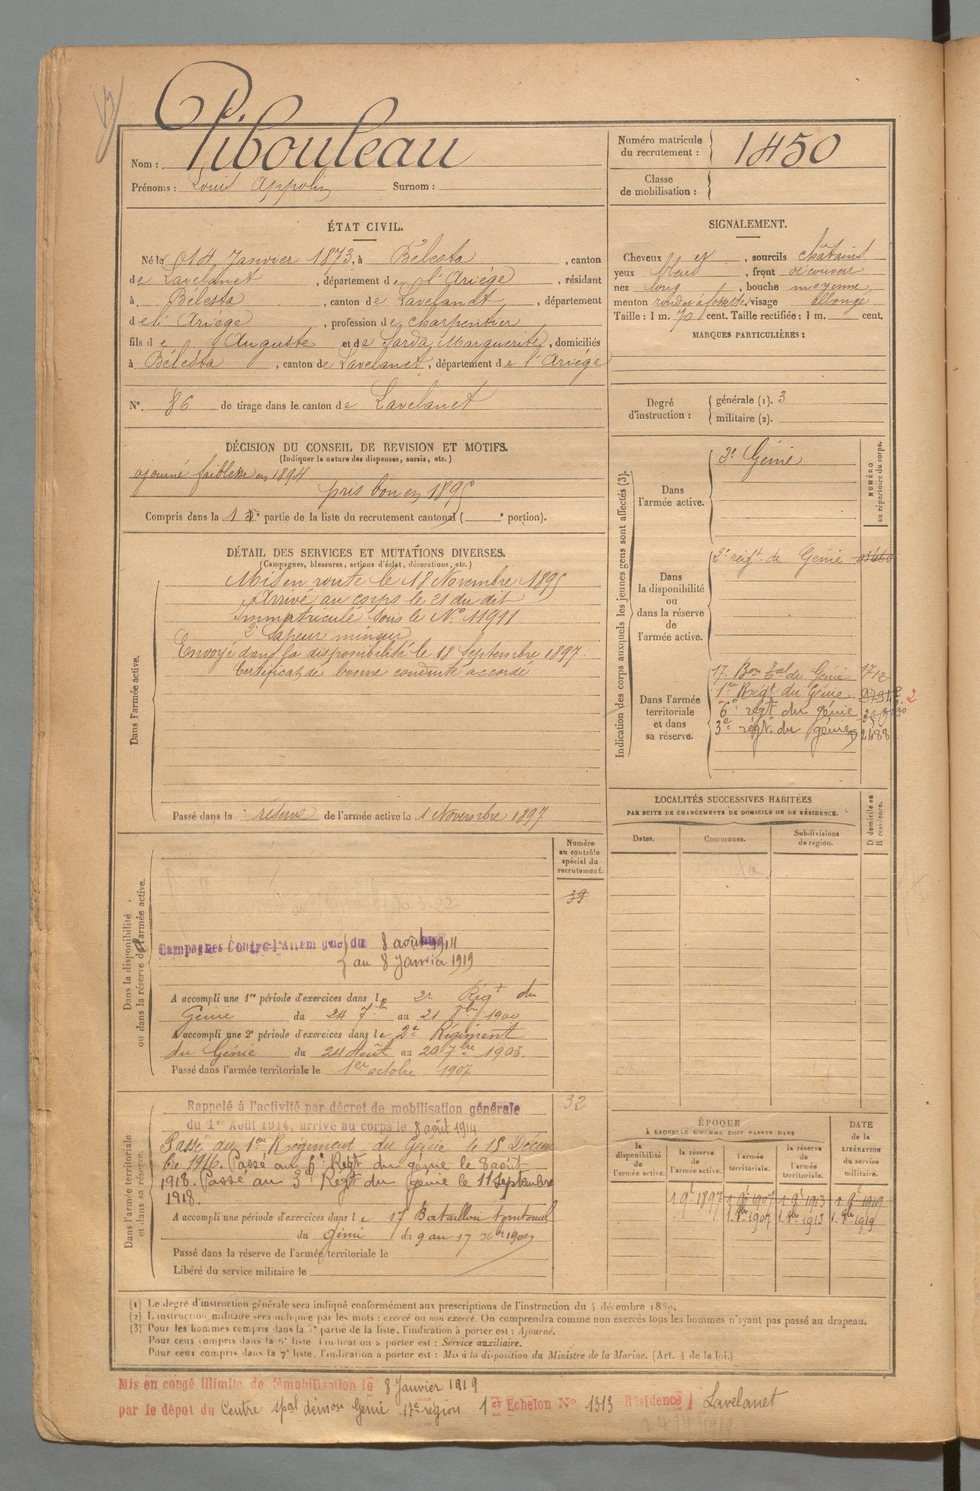 Nom : Pibouleau
Prénoms : Louis Appolin Surnom :
Numéro matricule du recrutement : 1450
Classe de mobilisation :
ÉTAT CIVIL.
Né le 14 Janvier 1873, à Bélesta, canton
de Lavelanet, département de l'Ariége, résidant
à Bélesta, canton de Lavelanet, département
de l'Ariége, profession de charpentier
fils de Auguste et de Sarda Marguerite, domiciliés
à Bélesta, canton de Lavelanet, département de l'Ariége
N°. 86 de tirage dans le canton de Lavelanet
SIGNALEMENT.
Cheveux et, sourcils châtains
yeux bleus, front découvert
nez long, bouche moyenne,
menton rond à fossette, visage allongé
Taille : 1 m. 70 cent. Taille rectifiée : 1 m. cent.
MARQUES PARTICULIÈRES :
Degré d'instruction : générale (1). 3
militaire (2).
DÉCISION DU CONSEIL DE REVISION ET MOTIFS.
(Indiquer la nature des dispenses, sursis, etc.)
ajourné faiblesse en 1894
pris bon en 1895
Compris dans la 1re partie de la liste du recrutement cantonal ( e portion).
DÉTAIL DES SERVICES ET MUTATIONS DIVERSES.
(Campagnes, blessures, actions d'éclat, décorations, etc.)
Dans l'armée active.
Mis en route le 18 Novembre 1895
Arrivé au corps le 21 du dit
Immatriculé sous le N° 11911
2e Sapeur mineur
Envoyé dans la disponibilité le 18 Septembre 1897.
Certificat de bonne conduite accordé
Passé dans la réserve de l'armée active le 1 Novembre 1897
Indication des corps auxquels les jeunes gens sont affectés (3).
NUMÉRO au répertoire du corps.
Dans l'armée active.
2e Génie
Dans la disponibilité ou dans la réserve de l'armée active.
2e régt. de Génie
Dans l'armée territoriale et dans sa réserve.
17e Bon tal du Génie 1712
1er Régt du Génie
6e régt du génie
3e régt. du génie 2488
LOCALITÉS SUCCESSIVES HABITÉES
PAR SUITE DE CHANGEMENTS DE DOMICILE OU DE RÉSIDENCE.
Dates. Communes. Subdivisions de région. D domicile ou R résidence.
Dans la disponibilité ou dans la réserve de l'armée active.
Numéro au contrôle spécial du recrutement.
39
Campagnes Contre l'Allemagne du 8 août 1914
au 8 Janvier 1919
A accompli une 1re période d'exercices dans le 2e Régt du
Génie du 24 7bre au 21 8bre 1900
A accompli une 2e période d'exercices dans le 2e Régiment
du Génie du 24 Août au 20 7bre 1903.
Passé dans l'armée territoriale le 1er octobre 1907
Dans l'armée territoriale et dans sa réserve.
32
Rappelé à l'activité par décret de mobilisation générale
du 1er Août 1914, arrivé au corps le 8 août 1914
Passé au 1er Régiment du Génie le 15 Décem
bre 1916. Passé au 6e Régt du génie le 8 août
1918. Passé au 3e Régt du Génie le 11 septembre
1918.
A accompli une période d'exercices dans le 17 Bataillon territorial
du Génie du 9 au 17
Passé dans la réserve de l'armée territoriale le
Libéré du service militaire le
ÉPOQUE
À LAQUELLE L'HOMME DOIT PASSER DANS
la disponibilité de l'armée active.
la réserve de l'armée active.
l'armée territoriale.
la réserve de l'armée territoriale.
DATE de la LIBÉRATION du service militaire.
1 9e 1897 1 9e 1907 1 9e 1913 1 9e 1919
1. 8re 1907 1. 8re 1913 1. 8re 1919
(1) Le degré d'instruction générale sera indiqué conformément aux prescriptions de l'instruction du 4 décembre 1889.
(2) L'instruction militaire sera indiquée par les mots : exercé ou non exercé. On comprendra comme non exercés tous les hommes n'ayant pas passé au drapeau.
(3) Pour les hommes compris dans la partie de la liste, l'indication à porter est : Ajourné.
Pour ceux compris dans la liste, l'indication à porter est : Service auxiliaire.
Pour ceux compris dans la 7e liste, l'indication à porter est : Mis à la disposition du Ministre de la Marine. (Art. 4 de la loi.)
Mis en congé illimité de démobilisation le 8 Janvier 1919
par le dépot du Centre spal démon Génie 17e région 1er Echelon No 1313 Résidence Lavelanet